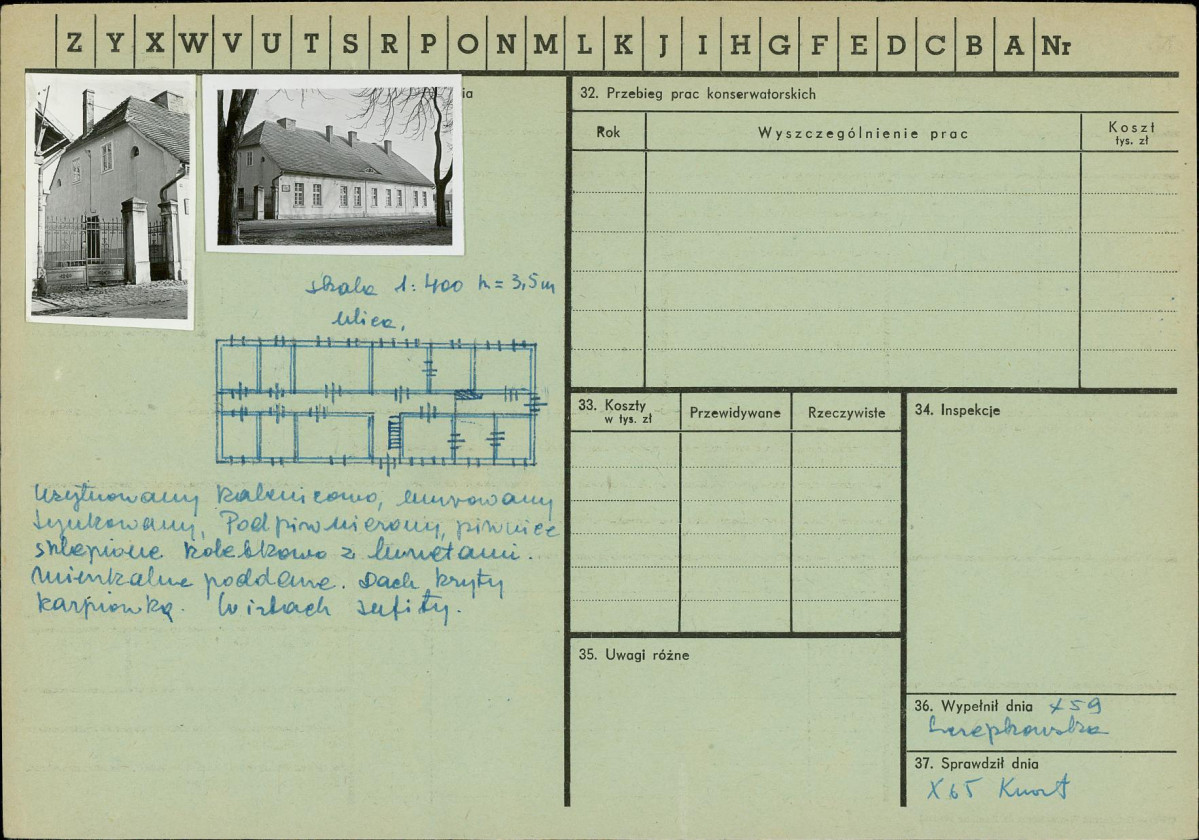 Z Y X W V U T S R P O N M L K J I H G F E D C B A Nr
ia
skala 1:400 h = 3,5m
ulica.
Usytuowany kalenicowo, murowany
tynkowany, Podpiwniczony, piwnice
sklepione kolebkowo z lunetami.
mieszkalne poddasze. Dach kryty
karpiówką. W izbach sufity.
32. Przebieg prac konserwatorskich
Rok Wyszczególnienie prac Koszt
tys. zł
33. Koszty
w tys. zł
Przewidywane Rzeczywiste
34. Inspekcje
35. Uwagi różne
36. Wypełnił dnia X 59
37. Sprawdził dnia
X 65